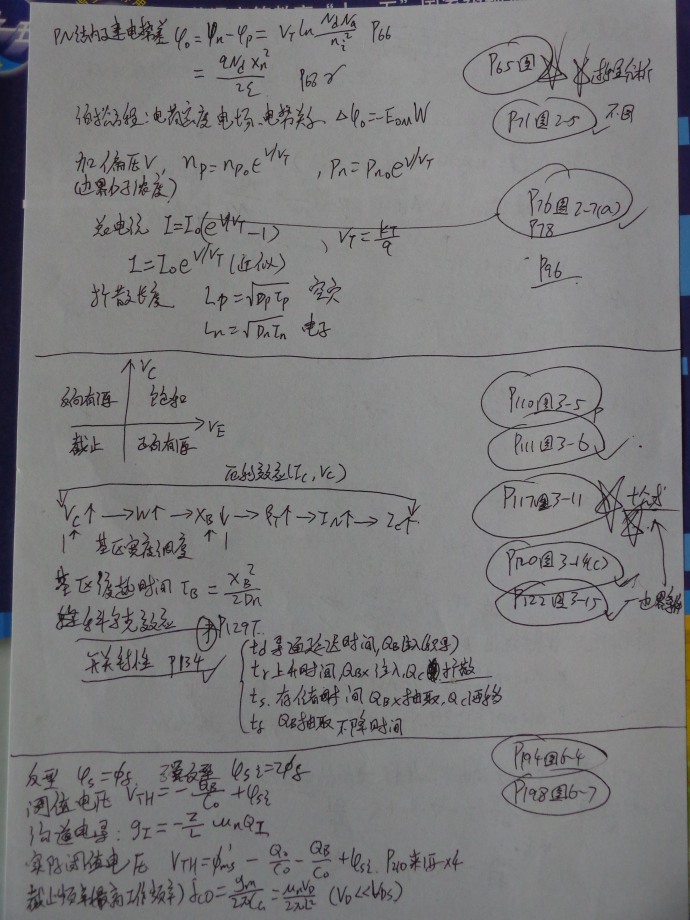 PN结内建电势差 φ₀ = φn - φp = VT ln NdNa/ni² P66
= qNd xn²/2ε P68
P65图 推导分析
泊松方程:电荷密度 电场、电势关系 Δφ₀ = -E₀M W
P71图2-5 不同
加偏压V, np = np₀ e^(V/VT), pn = pn₀ e^(V/VT)
(边界少子浓度)
P76图2-7(a)
P78
总电流 I = I₀(e^(V/VT) - 1), VT = kT/q
I = I₀ e^(V/VT) (近似)
P96
扩散长度 Lp = √(Dp τp) 空穴
Ln = √(Dn τn) 电子
VC
反向有源 饱和
VE
截止 正向有源
P110图3-5
P111图3-6
厄利效应(IC, VC)
VC↑ → W↑ → XB↓ → βT↑ → In↑ → IC↑
P117图3-11
基区宽度调度
P120图3-14(c)
基区渡越时间 τB = XB²/2Dn
P122图3-15 边界条件
科尔克效应 P129
开关特性 P134
td 导通延迟时间, QB注入(积累)
tr 上升时间, QBX 注入, QC 扩散
ts 存储时间 QBX抽取, QC
tf QB抽取 下降时间
P194图6-4
反型 φs = φf 强反型 φsi = 2φf
P198图6-7
阈值电压 VTH = - QB/C₀ + φsi
沟道电导: gI = - Z/L μn QI
实际阈值电压 VTH = φ'ms - Q₀/C₀ - QB/C₀ + φsi P210
截止频率(最高工作频率) fco = gm/2πCG = μnVD/2πL² (VD << VDS)